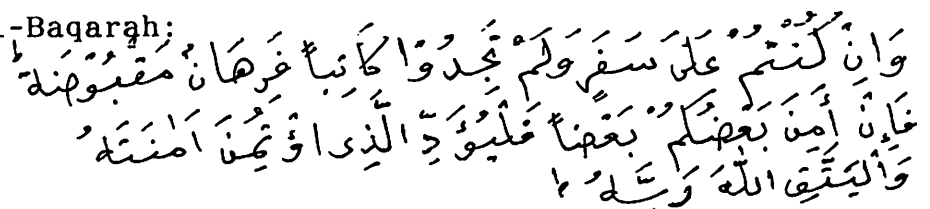 -Baqarah:
وَاِنْ كُنْتُمْ عَلَى سَفَرٍ وَلَمْ تَجِدُوْا كَاتِباً فَرِهَانٌ مَقْبُوْضَةٌ ط
فَاِنْ أَمِنَ بَعْضُكُمْ بَعْضاً فَلْيُؤَدِّ الَّذِى اؤْتُمِنَ اَمٰنَتَهُ
وَالْيَتَّقِ اللّٰهَ رَبَّهُ ط